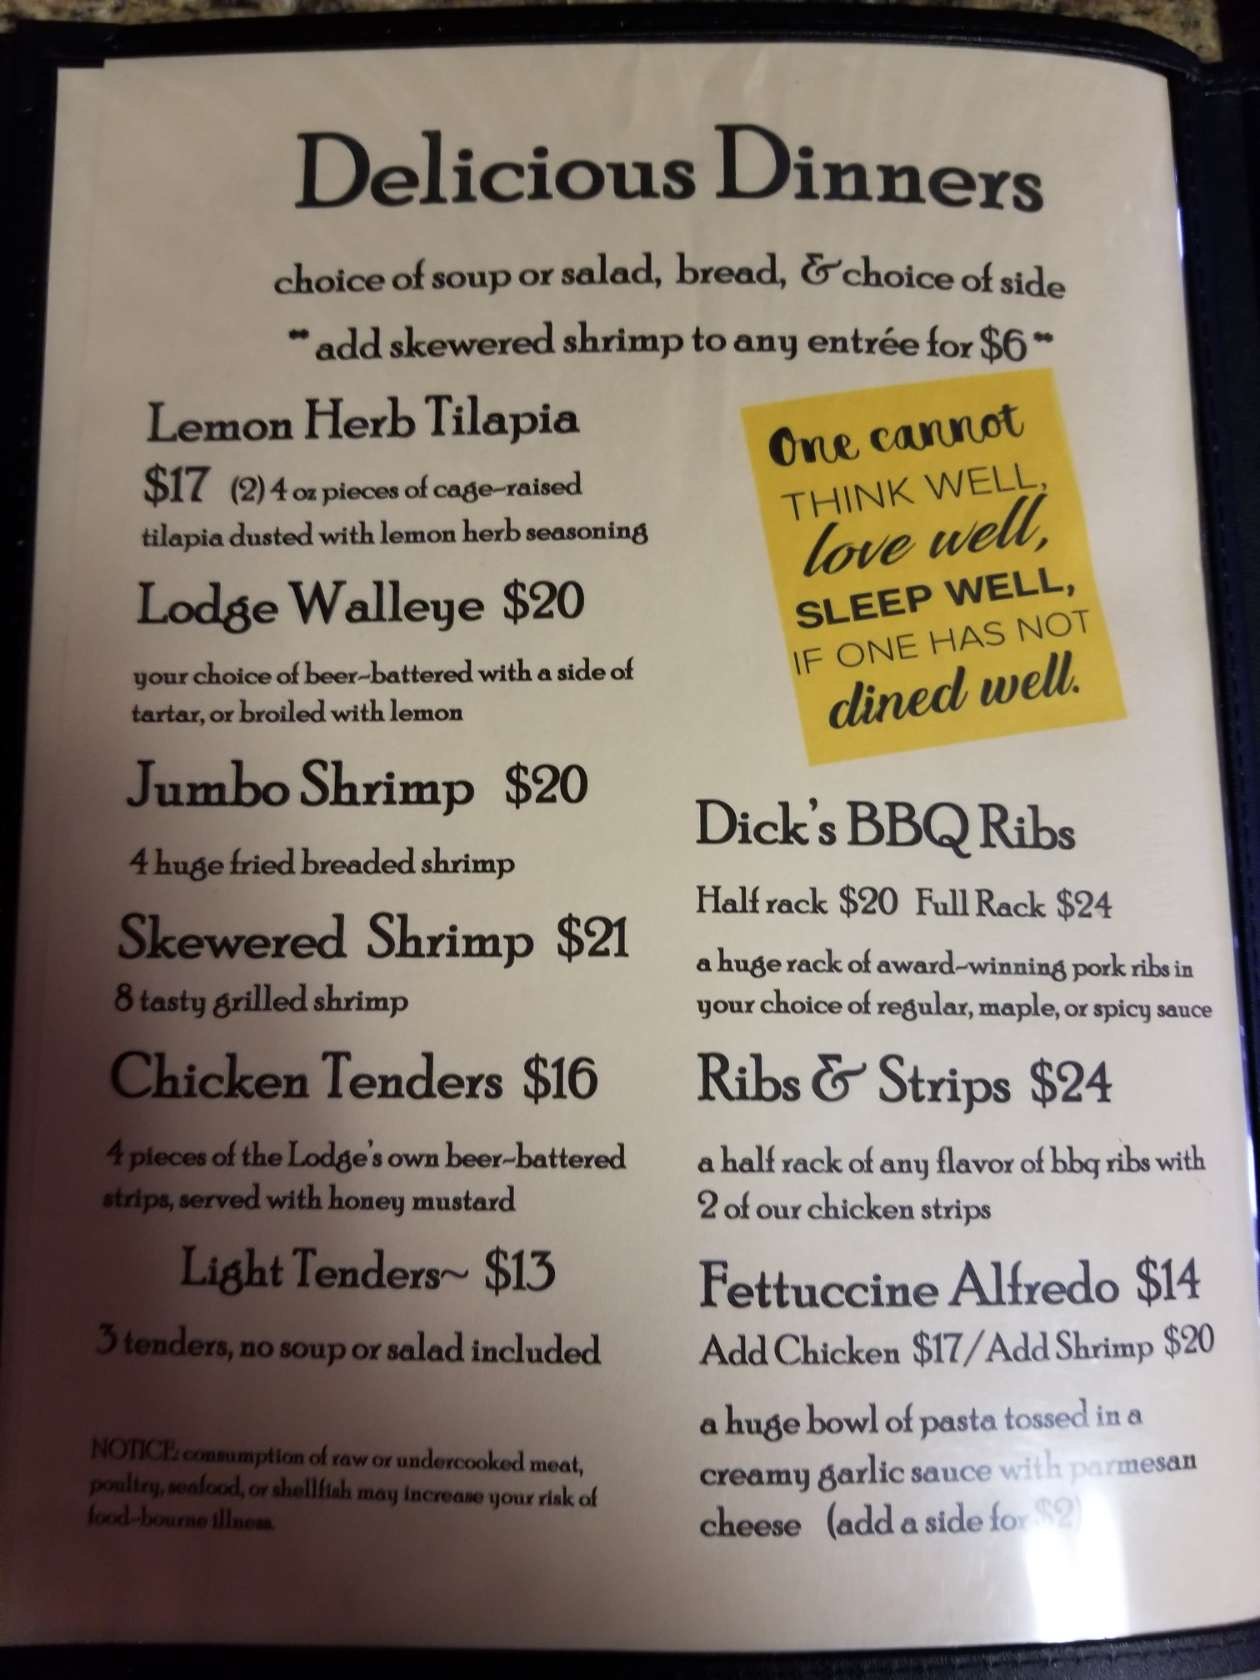 Delicious Dinners
choice of soup or salad, bread, & choice of side
** add skewered shrimp to any entrée for $6 **
Lemon Herb Tilapia
$17 (2) 4 oz pieces of cage-raised
tilapia dusted with lemon herb seasoning
Lodge Walleye $20
your choice of beer-battered with a side of
tartar, or broiled with lemon
Jumbo Shrimp $20
4 huge fried breaded shrimp
Skewered Shrimp $21
8 tasty grilled shrimp
Chicken Tenders $16
4 pieces of the Lodge's own beer-battered
strips, served with honey mustard
Light Tenders~ $13
3 tenders, no soup or salad included
NOTICE: consumption of raw or undercooked meat,
poultry, seafood, or shellfish may increase your risk of
food-bourne illness.
One cannot
THINK WELL,
love well,
SLEEP WELL,
IF ONE HAS NOT
dined well.
Dick's BBQ Ribs
Half rack $20 Full Rack $24
a huge rack of award-winning pork ribs in
your choice of regular, maple, or spicy sauce
Ribs & Strips $24
a half rack of any flavor of bbq ribs with
2 of our chicken strips
Fettuccine Alfredo $14
Add Chicken $17/Add Shrimp $20
a huge bowl of pasta tossed in a
creamy garlic sauce with parmesan
cheese (add a side for $2)